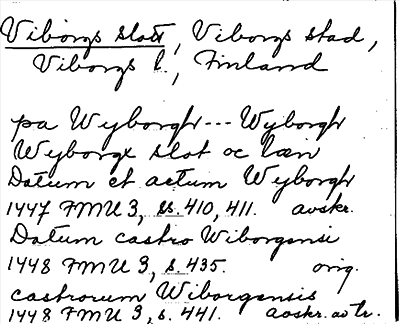 Viborgs slott, Viborgs stad,
Viborgs l., Finland
pa Wyborgh --- Wyborgh
Wyborgx slot oc læn
Datum et actum Wyborgh
1447 FMU 3, ss. 410, 411. avskr.
Datum castro Wiborgensi
1448 FMU 3, s. 435. orig.
castrorum Wiborgensis
1448 FMU 3, s. 441. avskr. av tr.